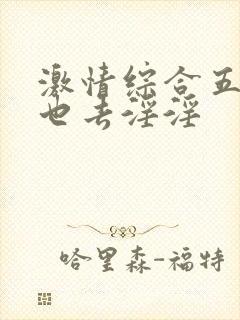 激情综合五
也去淫淫
哈里森-福特